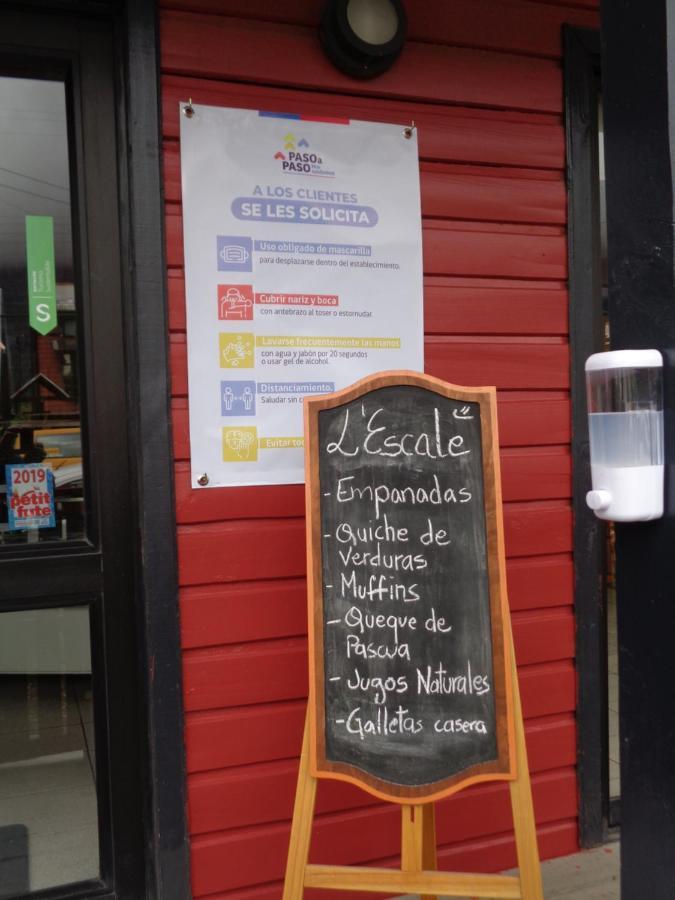 PASO a
PASO
A LOS CLIENTES
SE LES SOLICITA
Uso obligado de mascarilla
para desplazarse dentro del establecimiento.
Cubrir nariz y boca
con antebrazo al toser o estornudar.
Lavarse frecuentemente las manos
con agua y jabón por 20 segundos
o usar gel de alcohol.
Distanciamiento.
Saludar sin
Evitar
S
2019
petit
fute
L'Escale
- Empanadas
- Quiche de
Verduras
- Muffins
- Queque de
Pascua
- Jugos Naturales
- Galletas casera